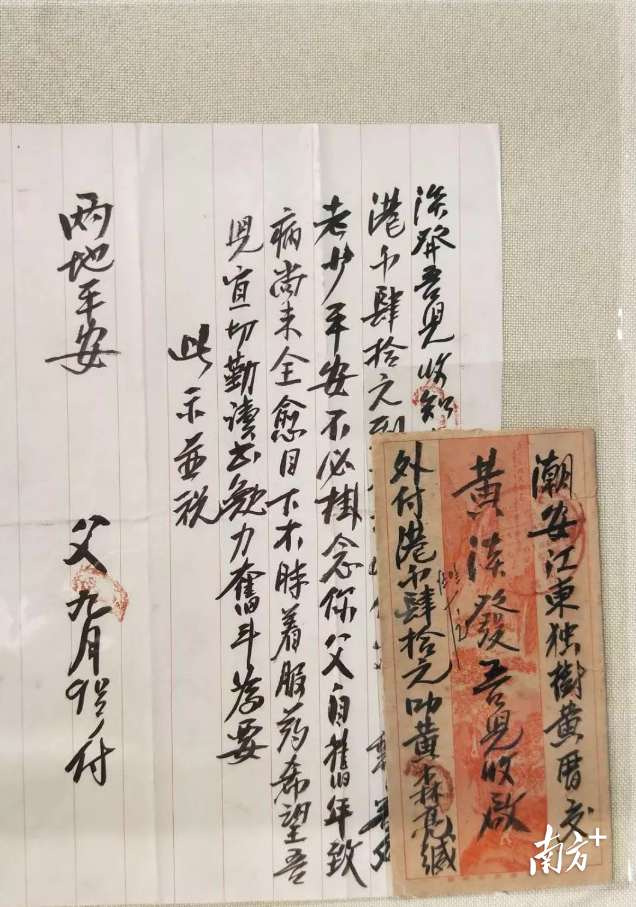 漢發吾児收知
港币肆拾元
老少平安不必掛念你父自舊年致
病尚未全愈目下不時着服药希望吾
児宜切勤讀书勉力奮斗為要
此示並祝
两地平安
父 九月9号付
潮安江東独樹黄厝交
黄漢發吾児收啟
外付港币肆拾元叻黄森亮缄
南方+